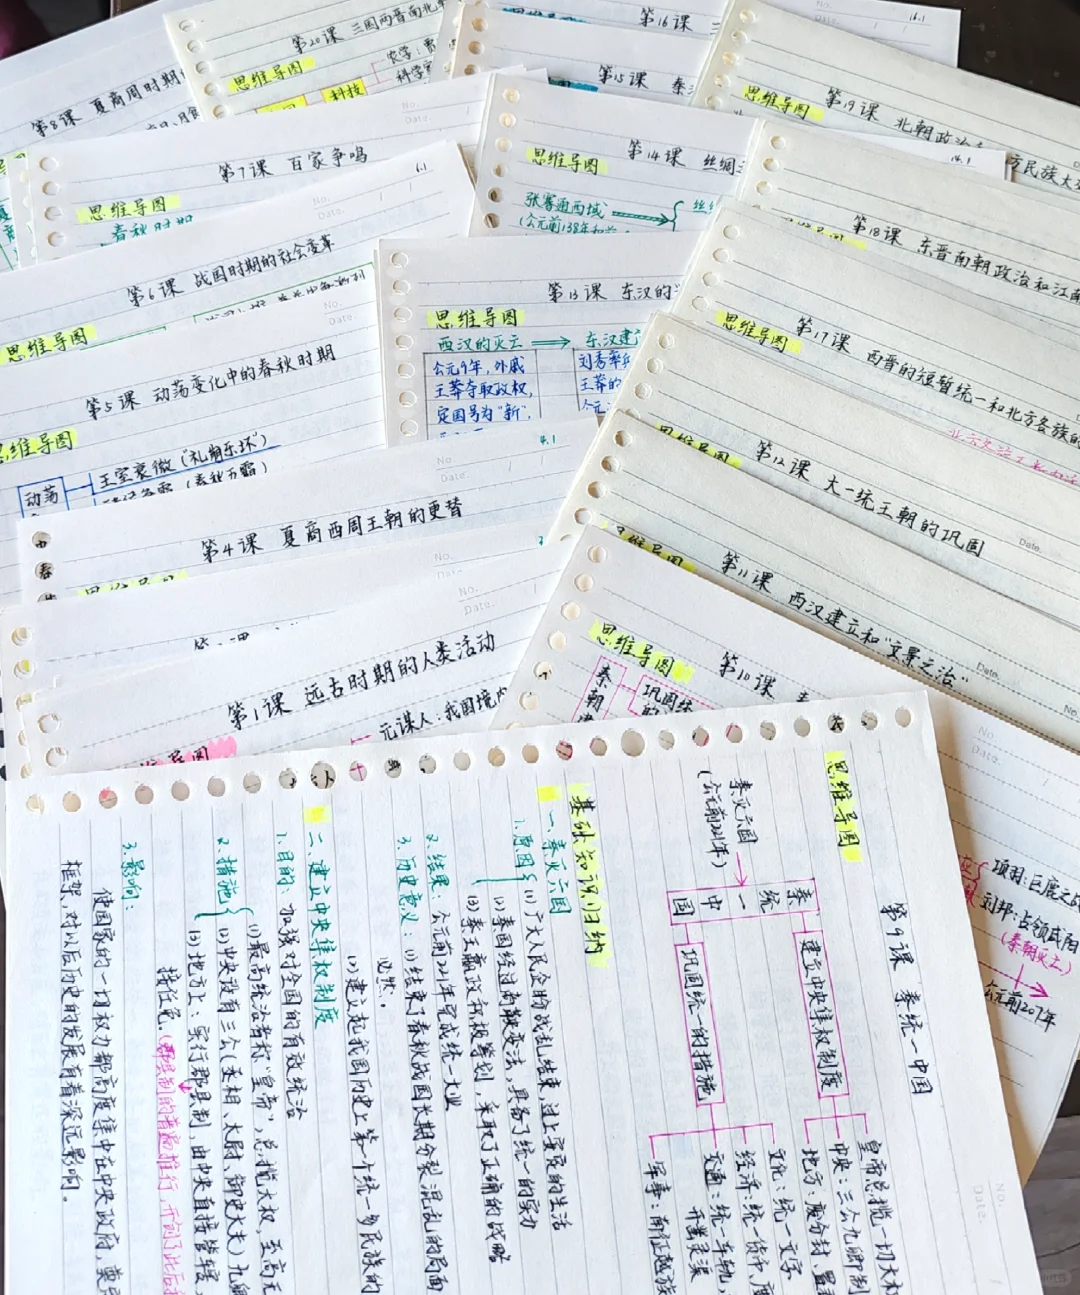 第8课 夏商周时期
第20课 三国两晋南北
思维导图
农学:
科学
科技
第16课
第15课 秦
16.1
第19课 北朝政治
思维导图
方民族大
第7课 百家争鸣
思维导图
春秋时期
No.
Date.
思维导图
第14课 丝绸
张骞通西域
(公元前138年和前
16.1
第18课 东晋南朝政治和江南
6.1
第6课 战国时期的社会变革
思维导图
第13课 东汉的
思维导图
西汉的灭亡
东汉建
公元9年,外戚
王莽夺取政权,
定国号为"新",
刘秀率
王莽的
公元
第17课 西晋的短暂统一和北方各族的
思维导图
No.
Date.
第5课 动荡变化中的春秋时期
思维导图
动荡
王室衰微(礼崩乐坏)
(春秋五霸)
第12课 大一统王朝的巩固
思维导图
Date.
4.1
No.
Date.
第4课 夏商西周王朝的更替
思维导图
第11课 西汉建立和"文景之治"
思维导图
Date.
No.
No.
Date.
No.
Date.
第1课 远古时期的人类活动
元谋人:我国境内
导图
第10课 秦
思维导图
秦朝
巩固统
No.
Date.
项羽:巨鹿之战
刘邦:占领咸阳
(秦朝灭亡)
公元前207年
第9课 秦统一中国
思维导图
秦灭六国
(公元前221年)
秦统一中国
建立中央集权制度
皇帝总揽一切大权
中央:三公九卿制
地方:废分封、置
巩固统一的措施
文化:统一文字
经济:统一货币、度
交通:统一车轨,
开凿灵渠
军事:南征越族
基础知识归纳
一、秦灭六国
1.原因
(1)广大人民企盼战乱结束,过上安定的生活
(2)秦国经过商鞅变法,具备了统一的实力
(3)秦王嬴政积极筹划,采取了正确的战略
2.结果:公元前221年完成统一大业
3.历史意义:(1)结束了春秋战国长期分裂混乱的局面
(2)建立起我国历史上第一个统一多民族的
二、建立中央集权制度
1.目的:加强对全国的有效统治
2.措施
(1)最高统治者称"皇帝",总揽大权,至高无
(2)中央设有三公(丞相、太尉、御史大夫)九卿
(3)地方上:实行郡县制,由中央直接管辖,
接任免。(郡县制的普遍推行,开创了此后
3.影响:
使国家的一切权力都高度集中在中央政府,奠
框架,对以后历史的发展有着深远影响。
No.
Date.